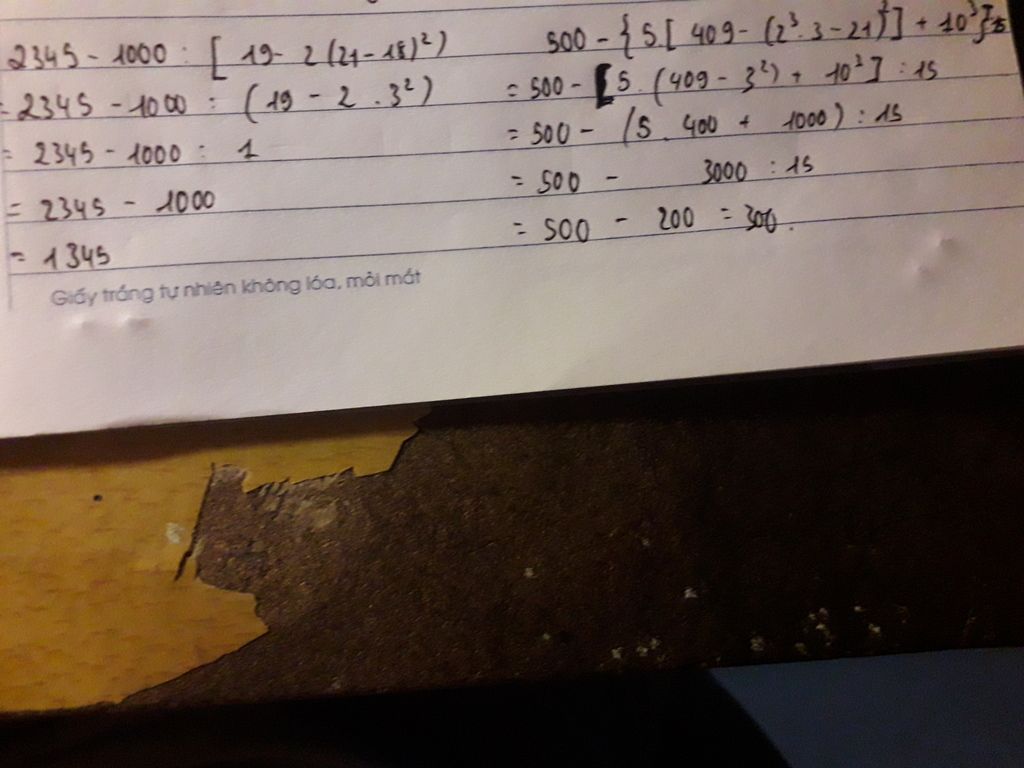 2345 - 1000 : [ 19 - 2 (21 - 18)²)
= 2345 - 1000 : (19 - 2 . 3²)
= 2345 - 1000 : 1
= 2345 - 1000
= 1345
500 - {5.[ 409 - (2³.3 - 21)²] + 10³}:15
= 500 - [5. (409 - 3²) + 10³] : 15
= 500 - (5. 400 + 1000) : 15
= 500 - 3000 : 15
= 500 - 200 = 300.
Giấy trắng tự nhiên không lóa, mỏi mắt